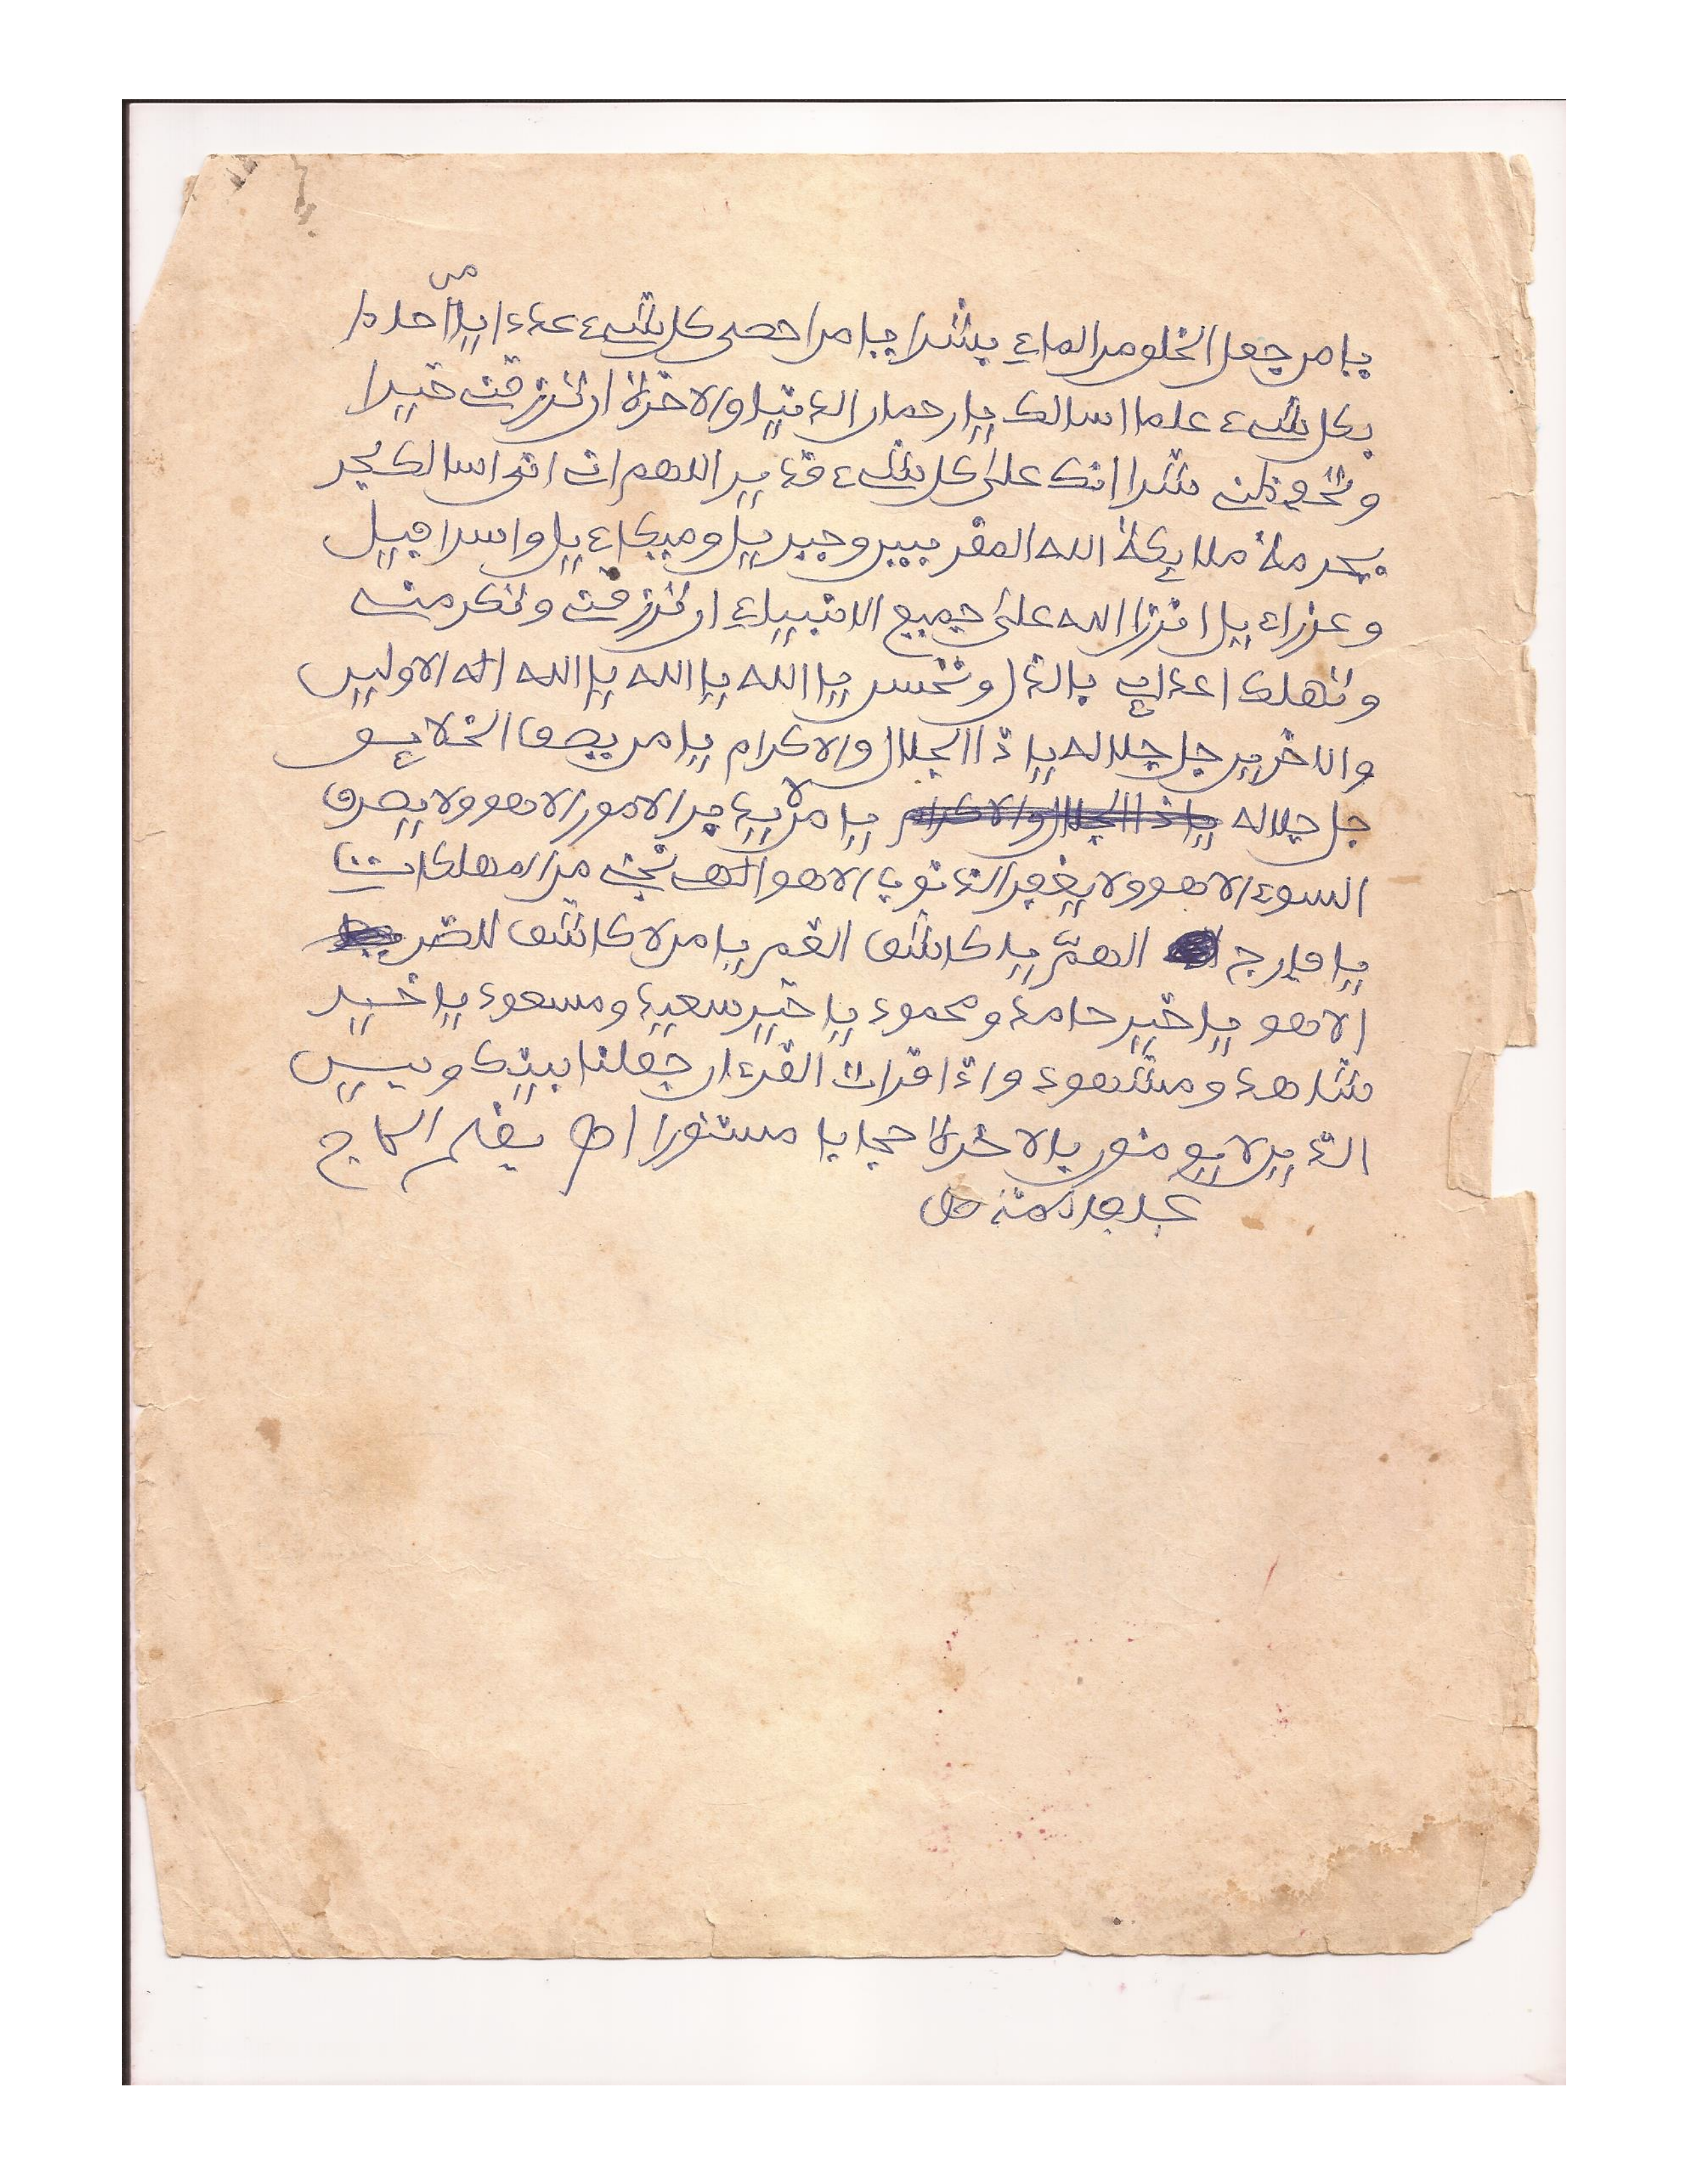 من
يا من جعل الخلو من الماء بشرا يا من احصى كل شيء عددا يا احدا
بكل شيء علما اسالك يا رحمان الدنيا والاخرة ان ترزقن خيرا
شرا انك على كل شيء قدير اللهم انى اسالك
بحرمة ملايكة الله المقربين وجبريل وميكاءيل واسرافيل
وعزراءيل الله على جميع الانبياء ان ترزقن وتكرمن
وتهلك اعداي بالذل يا الله يا الله يا الله اله الاولين
والاخرين جل جلاله يا ذا الجلال والاكرام يا من الخلايق
جل جلاله يا ذا الجلال والاكرام يا من لا يدبر الامور الا هو ولا يصرف
السوء الا هو ولا يغفر الذنوب الا هو نجن من المهلكات
يا فارج الهم يا كاشف الغم يا من لا كاشف للضر
الا هو يا خير حامد ومحمود يا خير سعيد ومسعود يا خير
شاهد ومشهود واذا قرات القرءان جعلنا بينك وبين
الذين لا يومنون بالاخرة حجابا مستورا اه بقلم الحاج